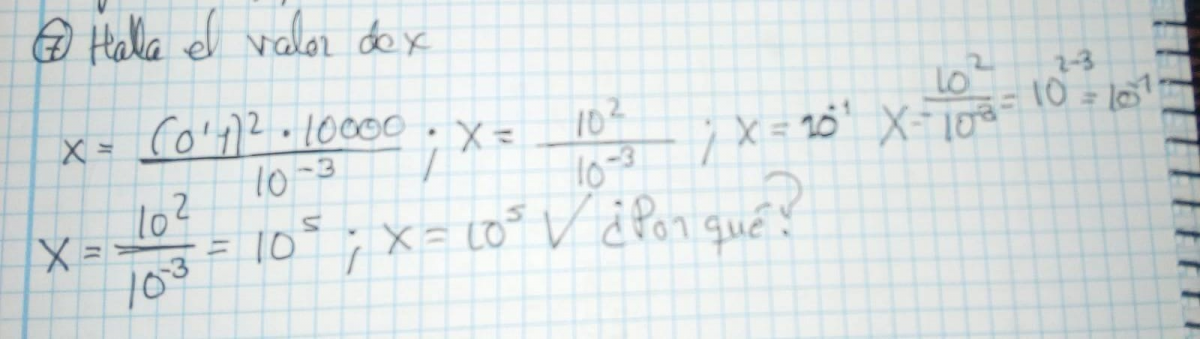 ⑦ Halla el valor de x
x = (0'1)² · 10000 / 10⁻³ ; x = 10² / 10⁻³ ; x = 10⁻¹ x = 10² / 10⁻³ = 10²⁻³ = 10⁻¹
x = 10² / 10⁻³ = 10⁵ ; x = 10⁵ √ ¿Por qué?